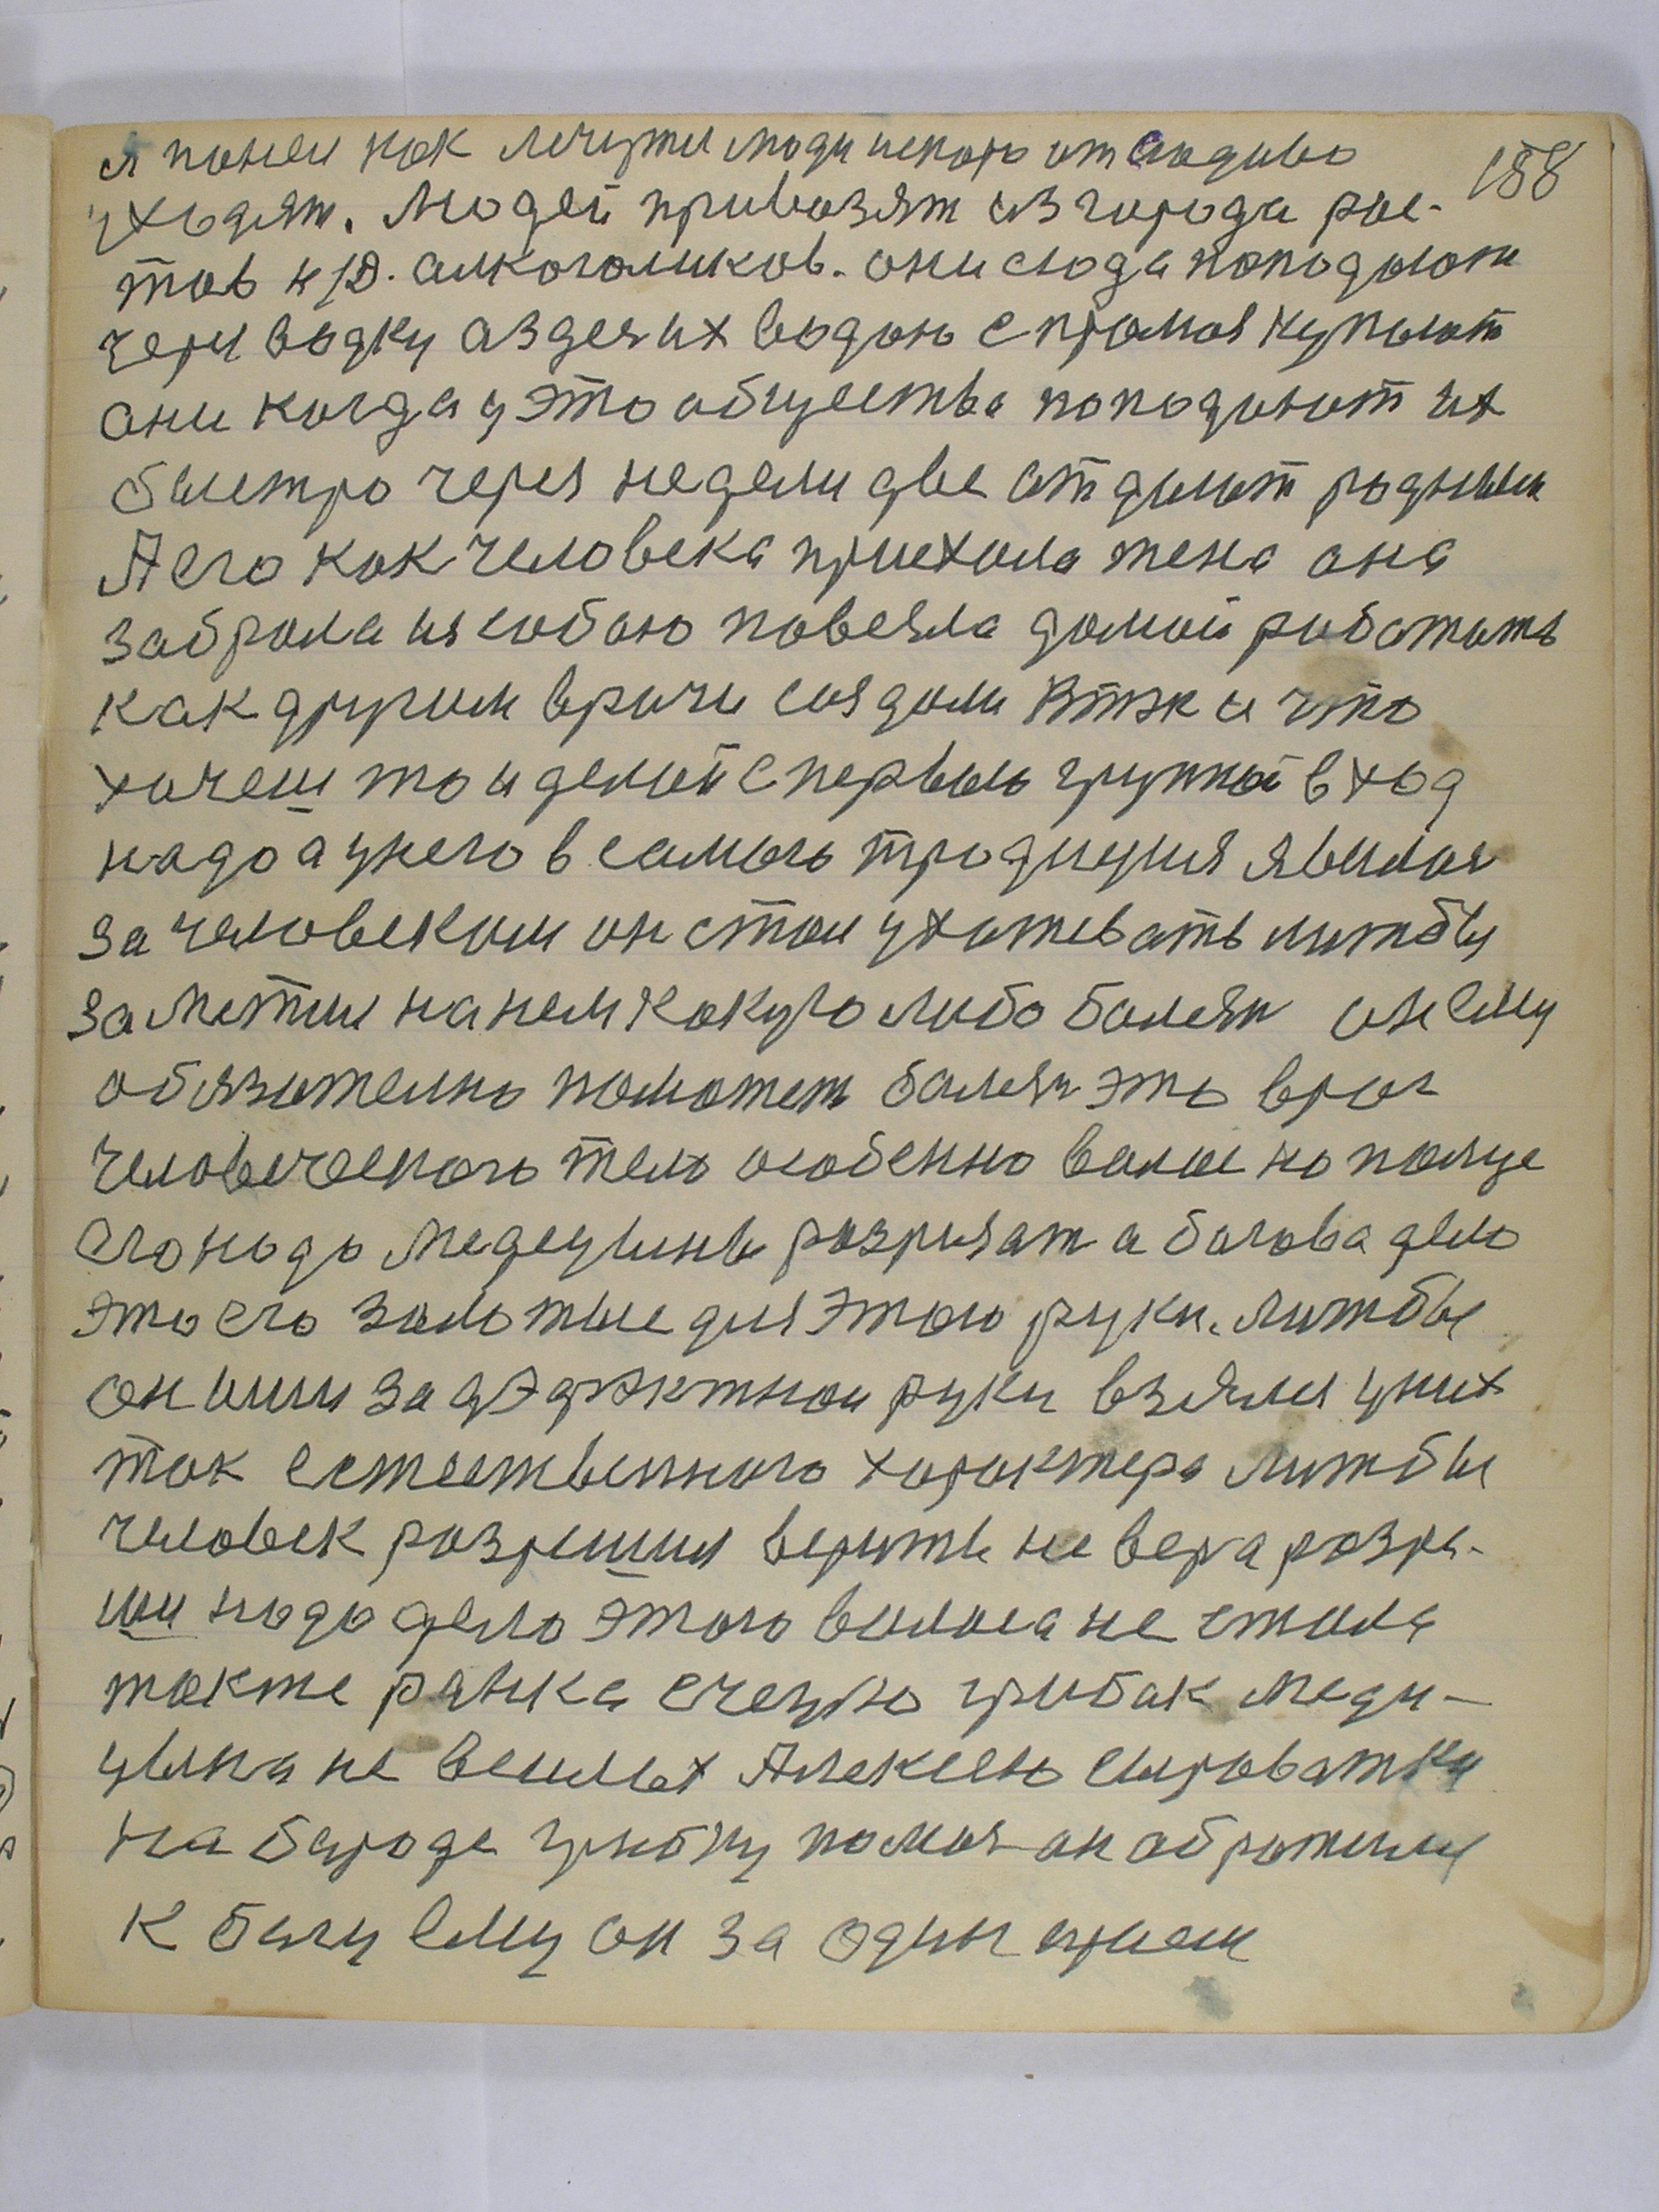 158
я понел как лечутся люди скоро отсюдово
уходят. Людей привозят из города рос-
тов н/д. алкоголиков. они сюда поподают
через водку аздея их водою с прамоя купают
они когда у это общества поподают их
быстро через недели две отдают родным
А его как человека приехала жена она
забрала из собою повезла домой работать
как другим врачи создали втэк и что
хочеш то и делай с первою группой в ход
надо а у него в самого традиция явилас
за человеком он стал ухаживать лижбы
заметил на нем какую либо болезн он ему
обязателно поможет болезн это враг
человеческого тела особенно волос на полце
его надо медецыне разризат а богова дело
это его золотые для этого руки. лижбы
он или за дэфэктнои руки взялся у них
ток естественного характера лижбы
человек разришил верить не вера разри-
ши надо дело этого волоса не стала
также ранка с чецою грибак меди-
цына не Алексею сыроватку
на бароде грибку помог он обратился
к богу ему он за один прием